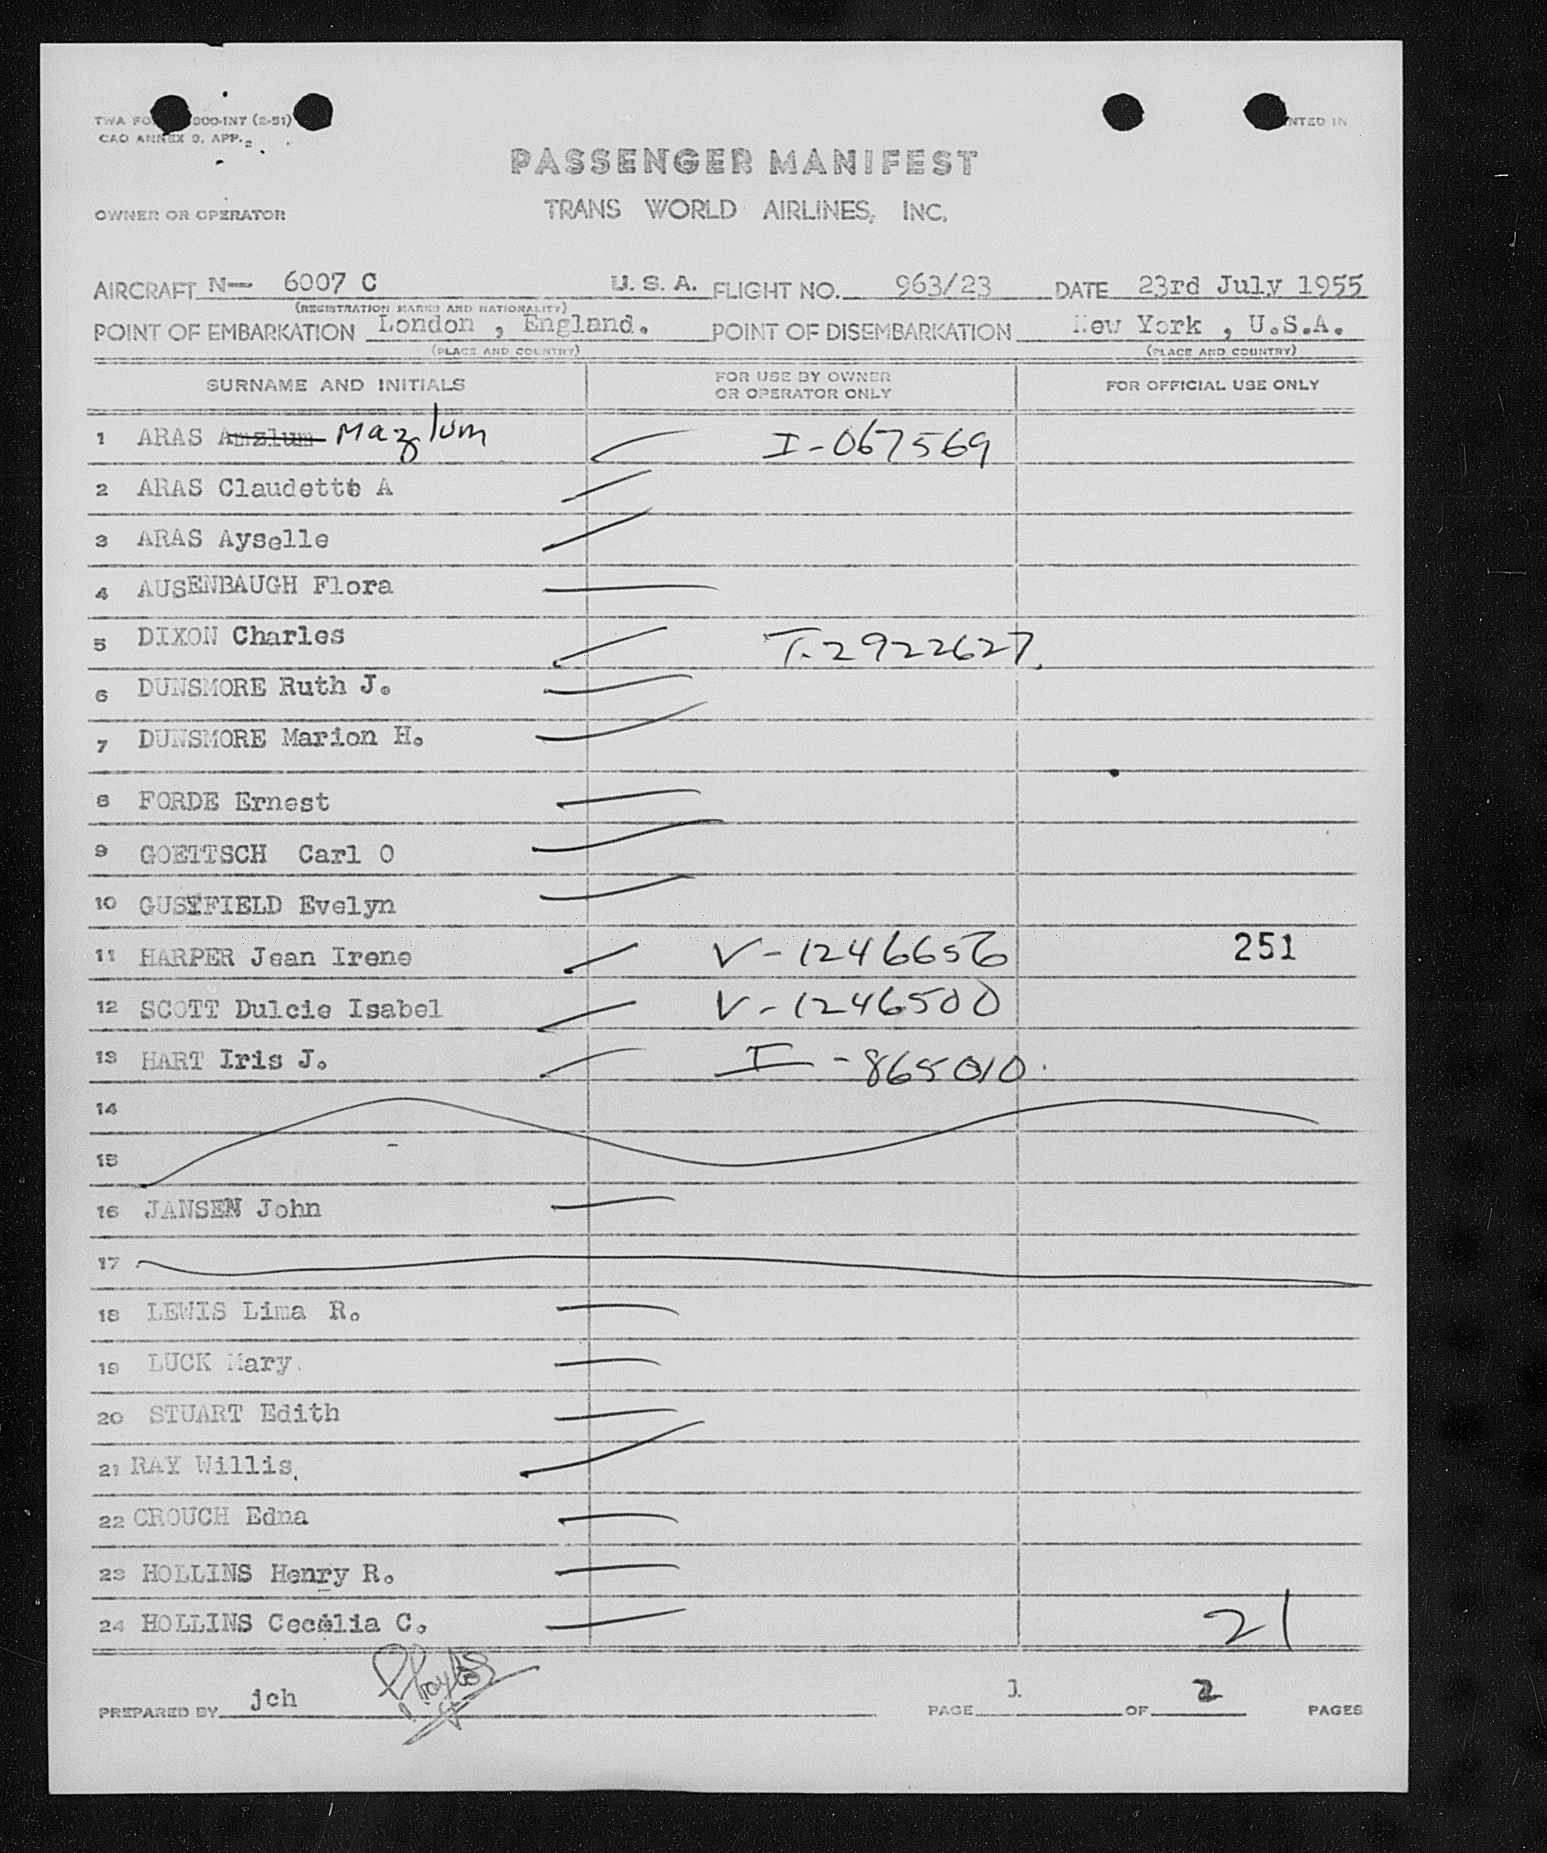 TWA FO 000-INT (2-51)
CAO ANNEX 9, APP. 2
NTED IN
PASSENGER MANIFEST
OWNER OR OPERATOR TRANS WORLD AIRLINES, INC.
AIRCRAFT N- 6007 C U.S.A. FLIGHT NO. 963/23 DATE 23rd July 1955
(REGISTRATION MARKS AND NATIONALITY)
POINT OF EMBARKATION London , England. POINT OF DISEMBARKATION New York , U.S.A.
(PLACE AND COUNTRY) (PLACE AND COUNTRY)
SURNAME AND INITIALS FOR USE BY OWNER OR OPERATOR ONLY FOR OFFICIAL USE ONLY
1 ARAS Amzlum Mazlum I-067569
2 ARAS Claudette A
3 ARAS Ayselle
4 AUSENBAUGH Flora
5 DIXON Charles T-2922627.
6 DUNSMORE Ruth J.
7 DUNSMORE Marion H.
8 FORDE Ernest
9 GOETTSCH Carl O
10 GUSTFIELD Evelyn
11 HARPER Jean Irene V-1246656 251
12 SCOTT Dulcie Isabel V-1246500
13 HART Iris J. I-865010.
14
15
16 JANSEN John
17
18 LEWIS Lima R.
19 LUCK Mary.
20 STUART Edith
21 RAY Willis
22 CROUCH Edna
23 HOLLINS Henry R.
24 HOLLINS Cecelia C. 21
PREPARED BY jch PAGE 1 OF 2 PAGES